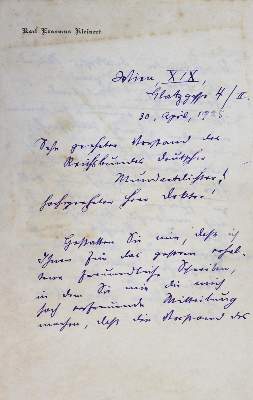 Karl Erasmus Kleinert
Wien, XIX,
Glatzgasse 4/II.
30. April, 1926
Sehr geehrter Vorstand des
Reichsbundes deutscher
Mundartdichter!
Hochgeehrter Herr Doktor!
Gestatten Sie mir, daß ich
Ihnen für das gestern erhal-
tene freundliche Schreiben,
in dem Sie mir die mich
hoch erfreuende Mitteilung
machen, daß der Vorstand des